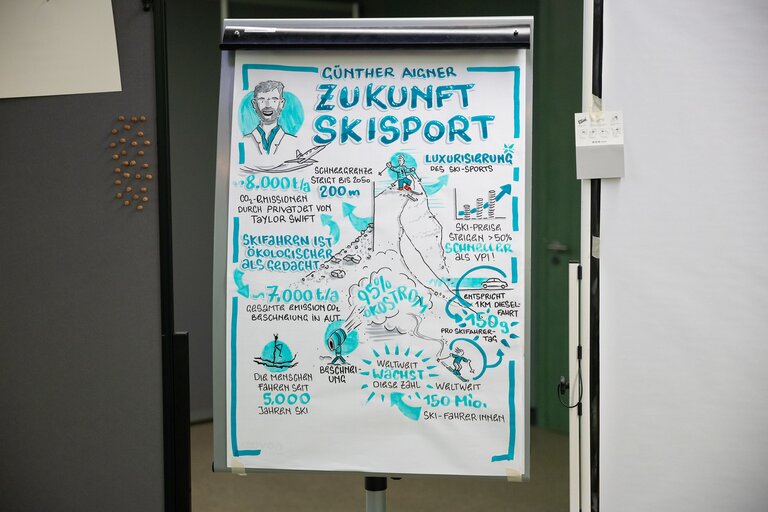 GÜNTHER AIGNER
ZUKUNFT
SKISPORT
~8.000 t/a
CO₂-EMISSIONEN
DURCH PRIVATJET VON
TAYLOR SWIFT
SCHNEEGRENZE
STEIGT BIS 2050
200m
LUXURISIERUNG
DES SKI-SPORTS
SKI-PREISE
STEIGEN >50%
SCHNELLER
ALS VPI!
SKIFAHREN IST
ÖKOLOGISCHER
ALS GEDACHT
~7.000 t/a
GESAMTE EMISSION CO₂
BESCHNEIUNG IN AUT.
95%
ÖKOSTROM
ENTSPRICHT
1KM DIESEL-
FAHRT
150g
PRO SKIFAHRER-
TAG
DIE MENSCHEN
FAHREN SEIT
5.000
JAHREN SKI
BESCHNEI-
UNG
WELTWEIT
WÄCHST
DIESE ZAHL
WELTWEIT
150 Mio.
SKI-FAHRER:INNEN